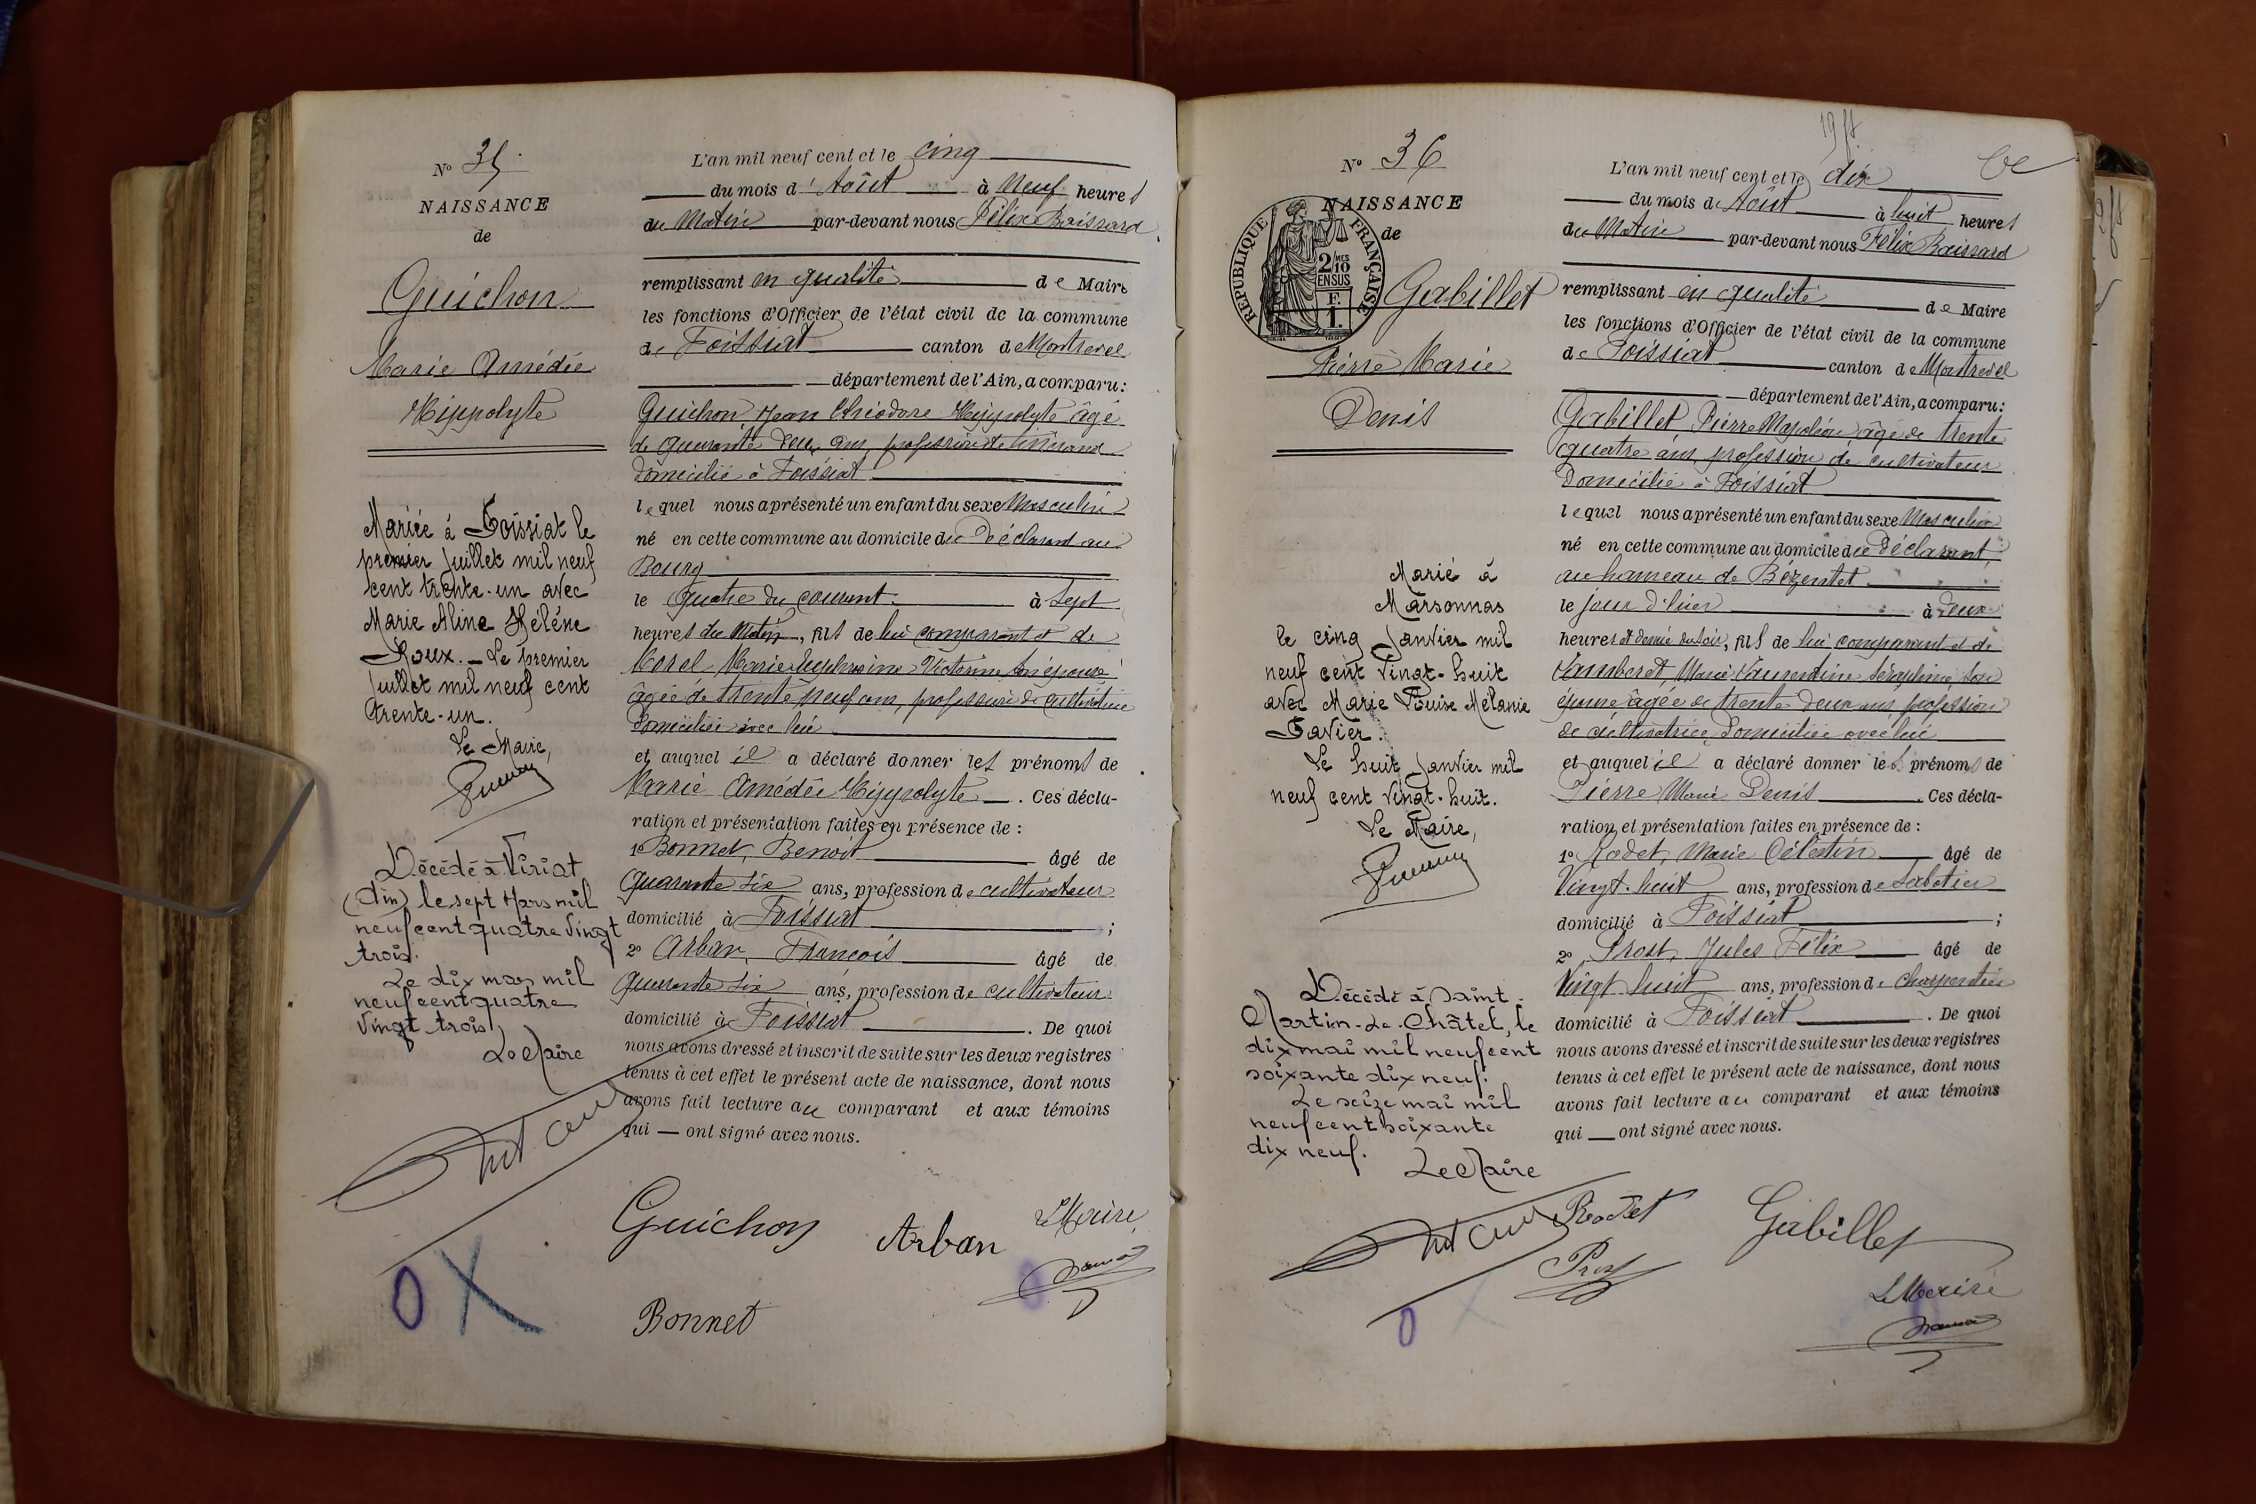 No 35.
NAISSANCE
de
Guichon
Marie Amédée
Hippolyte
Mariée à Foissiat le
premier Juillet mil neuf
cent trente-un avec
Marie Aline Hélène
Roux. - Le premier
Juillet mil neuf cent
trente-un.
Le Maire,
Décédé à Viriat
(Ain) le sept Mars mil
neuf cent quatre vingt
trois.
Le dix mars mil
neuf cent quatre
vingt trois
Le Maire
L'an mil neuf cent et le cinq
du mois d'Août à Neuf heures
du Matin par-devant nous Félix Boissard
remplissant en qualité de Maire
les fonctions d'Officier de l'état civil de la commune
de Foissiat canton de Montrevel
département de l'Ain, a comparu:
Guichon, Jean Théodore Hippolyte âgé
de quarante deux ans, profession de
domicilié à Foissiat
lequel nous a présenté un enfant du sexe Masculin
né en cette commune au domicile du Déclarant au
Bourg
le Quatre du courant à Sept
heures du Matin, fils de lui comparant et de
Morel Marie Euphrosine Victorine son épouse
âgée de trente neuf ans, profession de cultivatrice
domiciliée avec lui
et auquel il a déclaré donner les prénoms de
Marie Amédée Hippolyte. Ces décla-
ration et présentation faites en présence de :
1o Bonnet, Benoit âgé de
Quarante six ans, profession de cultivateur
domicilié à Foissiat ;
2o Arban, François âgé de
Quarante six ans, profession de cultivateur
domicilié à Foissiat. De quoi
nous avons dressé et inscrit de suite sur les deux registres
tenus à cet effet le présent acte de naissance, dont nous
avons fait lecture au comparant et aux témoins
qui — ont signé avec nous.
Guichon
Arban
Le Maire,
Bonnet
O X
No 36
NAISSANCE
de
REPUBLIQUE FRANÇAISE
2/10 MES
EN SUS
F.
1.
Gabillet
Pierre Marie
Denis
Marié à
Marsonnas
le cinq Janvier mil
neuf cent vingt-huit
avec Marie Louise Mélanie
Favier.
Le huit Janvier mil
neuf cent vingt-huit.
Le Maire,
Décédé à Saint-
Martin-Le-Châtel, le
dix mai mil neuf cent
soixante dix neuf.
Le seize mai mil
neuf cent soixante
dix neuf.
Le Maire
L'an mil neuf cent et le dix
du mois de Août à huit heures
du Matin par-devant nous Félix Boissard
remplissant en qualité de Maire
les fonctions d'Officier de l'état civil de la commune
de Foissiat canton de Montrevel
département de l'Ain, a comparu:
Gabillet Pierre Napoléon, âgé de trente
quatre ans, profession de cultivateur
domicilié à Foissiat
lequel nous a présenté un enfant du sexe Masculin
né en cette commune au domicile du Déclarant,
au hameau de Bézentet
le jour d'hier à deux
heures et demie du soir, fils de lui comparant et de
Lamberet, Marie Laurentine Séraphine son
épouse âgée de trente deux ans profession
de cultivatrice, domiciliée avec lui
et auquel il a déclaré donner les prénoms de
Pierre Marie Denis. Ces décla-
ration et présentation faites en présence de :
1o Rodet, Marie Célestin âgé de
Vingt-huit ans, profession de Sabotier
domicilié à Foissiat ;
2o Prost, Jules Félix âgé de
Vingt huit ans, profession de charpentier
domicilié à Foissiat. De quoi
nous avons dressé et inscrit de suite sur les deux registres
tenus à cet effet le présent acte de naissance, dont nous
avons fait lecture au comparant et aux témoins
qui — ont signé avec nous.
Rodet
Gabillet
Prost
Le Maire
O